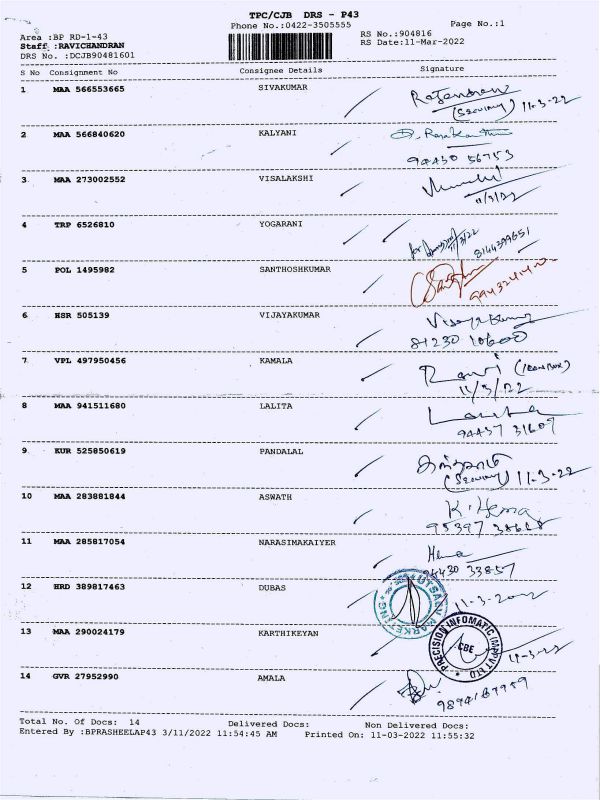 TPC/CJB DRS - P43
Phone No.:0422-3505555
Page No.:1
Area :BP RD-1-43
RS No.:904816
Staff :RAVICHANDRAN
RS Date:11-Mar-2022
DRS No. :DCJB90481601
S No Consignment No Consignee Details Signature
1 MAA 566553665 SIVAKUMAR Rajendran
(Security) 11-3-22
2 MAA 566840620 KALYANI
94430 56753
3 MAA 273002552 VISALAKSHI
11/3/22
4 TRP 6526810 YOGARANI
11/3/22
8144399651
5 POL 1495982 SANTHOSHKUMAR
6 HSR 505139 VIJAYAKUMAR Vijayakumar
81230 10600
7 VPL 497950456 KAMALA Ravi
11/3/22
8 MAA 941511680 LALITA Lalitha
94437 31609
9 KUR 525850619 PANDALAL
(Security) 11-3-22
10 MAA 283881844 ASWATH K. Hema
95397 38668
11 MAA 285817054 NARASIMAKAIYER Hema
94430 33857
12 HRD 389817463 DUBAS
UTSAV MARKETING
11-3-2022
13 MAA 290024179 KARTHIKEYAN
PRECISION INFOMATIC (M) PVT LTD
CBE
11-3-22
14 GVR 27952990 AMALA
Total No. Of Docs: 14 Delivered Docs: Non Delivered Docs:
Entered By :BPRASHEELAP43 3/11/2022 11:54:45 AM Printed On: 11-03-2022 11:55:32